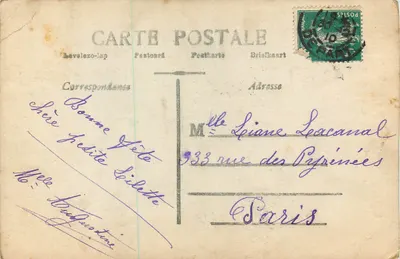 CARTE POSTALE
Levelezo-lap Postcard Postkarte Briefkaart
Correspondance Adresse
Bonne fête
chère petite Lilette
Mlle Augustine
Mlle Liane Lacanal
933 rue des Pyrénées
Paris
POSTES